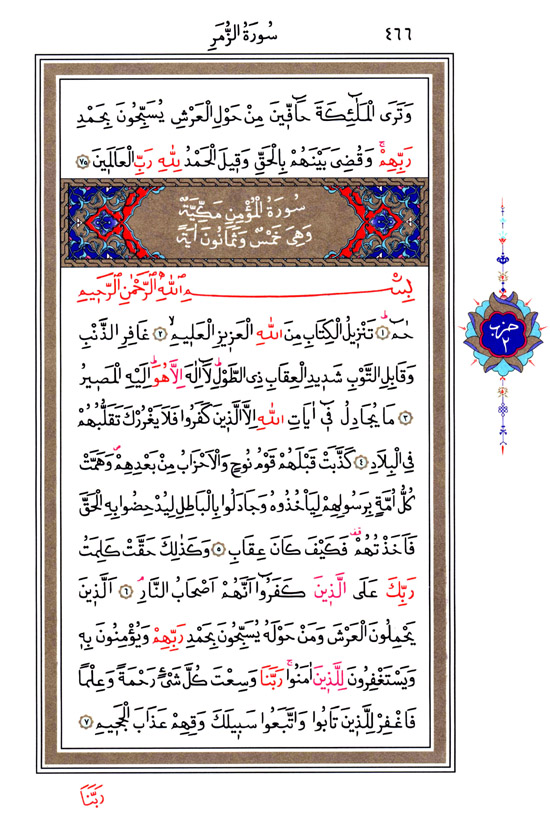 ٤٦٦ سُورَةُ الزُّمَرِ
وَتَرَى الْمَلٰٓئِكَةَ حَٓافّ۪ينَ مِنْ حَوْلِ الْعَرْشِ يُسَبِّحُونَ بِحَمْدِ
رَبِّهِمْۚ وَقُضِيَ بَيْنَهُمْ بِالْحَقِّ وَق۪يلَ الْحَمْدُ لِلّٰهِ رَبِّ الْعَالَم۪ينَ ﴿٧٥﴾
سُورَةُ الْمُؤْمِنِ مَكِّيَّةٌ
وَهِيَ خَمْسٌ وَثَمَانُونَ اٰيَةً
بِسْمِ اللّٰهِ الرَّحْمٰنِ الرَّح۪يمِ
حٰمٓۜ ﴿١﴾ تَنْز۪يلُ الْكِتَابِ مِنَ اللّٰهِ الْعَز۪يزِ الْعَل۪يمِۙ ﴿٢﴾ غَافِرِ الذَّنْبِ
وَقَابِلِ التَّوْبِ شَد۪يدِ الْعِقَابِ ذِي الطَّوْلِۜ لَٓا اِلٰهَ اِلَّا هُوَۜ اِلَيْهِ الْمَص۪يرُ
﴿٣﴾ مَا يُجَادِلُ ف۪ٓي اٰيَاتِ اللّٰهِ اِلَّا الَّذ۪ينَ كَفَرُوا فَلَا يَغْرُرْكَ تَقَلُّبُهُمْ
فِي الْبِلَادِ ﴿٤﴾ كَذَّبَتْ قَبْلَهُمْ قَوْمُ نُوحٍ وَالْاَحْزَابُ مِنْ بَعْدِهِمْۖ وَهَمَّتْ
كُلُّ اُمَّةٍ بِرَسُولِهِمْ لِيَأْخُذُوهُ وَجَادَلُوا بِالْبَاطِلِ لِيُدْحِضُوا بِهِ الْحَقَّ
فَاَخَذْتُهُمْ۠ فَكَيْفَ كَانَ عِقَابِ ﴿٥﴾ وَكَذٰلِكَ حَقَّتْ كَلِمَتُ
رَبِّكَ عَلَى الَّذ۪ينَ كَفَرُٓوا اَنَّهُمْ اَصْحَابُ النَّارِۢ ﴿٦﴾ اَلَّذ۪ينَ
يَحْمِلُونَ الْعَرْشَ وَمَنْ حَوْلَهُ يُسَبِّحُونَ بِحَمْدِ رَبِّهِمْ وَيُؤْمِنُونَ بِه۪
وَيَسْتَغْفِرُونَ لِلَّذ۪ينَ اٰمَنُواۚ رَبَّنَا وَسِعْتَ كُلَّ شَيْءٍ رَحْمَةً وَعِلْمًا
فَاغْفِرْ لِلَّذ۪ينَ تَابُوا وَاتَّبَعُوا سَب۪يلَكَ وَقِهِمْ عَذَابَ الْجَح۪يمِ ﴿٧﴾
رَبَّنَا
حزب
٢